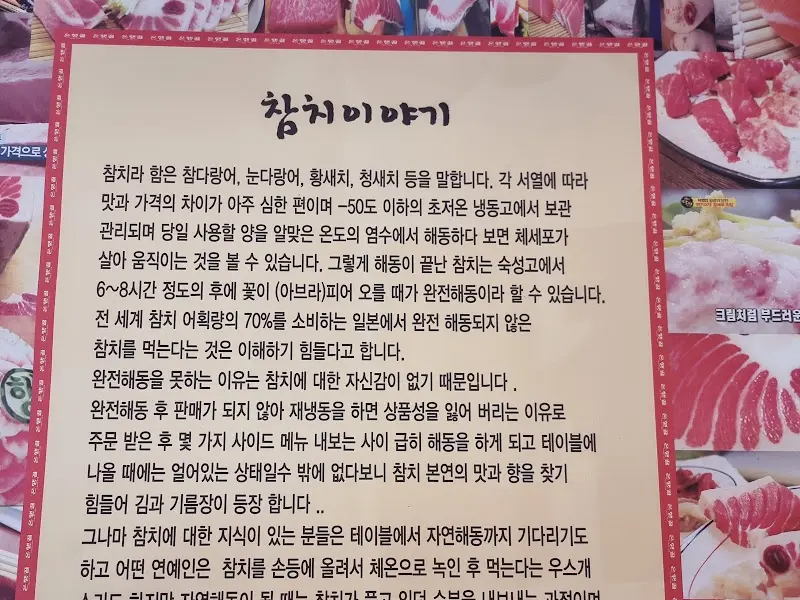 참치이야기
참치라 함은 참다랑어, 눈다랑어, 황새치, 청새치 등을 말합니다. 각 서열에 따라
맛과 가격의 차이가 아주 심한 편이며 -50도 이하의 초저온 냉동고에서 보관
관리되며 당일 사용할 양을 알맞은 온도의 염수에서 해동하다 보면 체세포가
살아 움직이는 것을 볼 수 있습니다. 그렇게 해동이 끝난 참치는 숙성고에서
6~8시간 정도의 후에 꽃이 (아브라)피어 오를 때가 완전해동이라 할 수 있습니다.
전 세계 참치 어획량의 70%를 소비하는 일본에서 완전 해동되지 않은
참치를 먹는다는 것은 이해하기 힘들다고 합니다.
완전해동을 못하는 이유는 참치에 대한 자신감이 없기 때문입니다 .
완전해동 후 판매가 되지 않아 재냉동을 하면 상품성을 잃어 버리는 이유로
주문 받은 후 몇 가지 사이드 메뉴 내보는 사이 급히 해동을 하게 되고 테이블에
나올 때에는 얼어있는 상태일수 밖에 없다보니 참치 본연의 맛과 향을 찾기
힘들어 김과 기름장이 등장 합니다 ..
그나마 참치에 대한 지식이 있는 분들은 테이블에서 자연해동까지 기다리기도
하고 어떤 연예인은 참치를 손등에 올려서 체온으로 녹인 후 먹는다는 우스개
소리도 하지만 자연해동이 될 때는 참치가 품고 있던 수분을 내보내는 과정이며
가격으로
크림처럼 부드러운